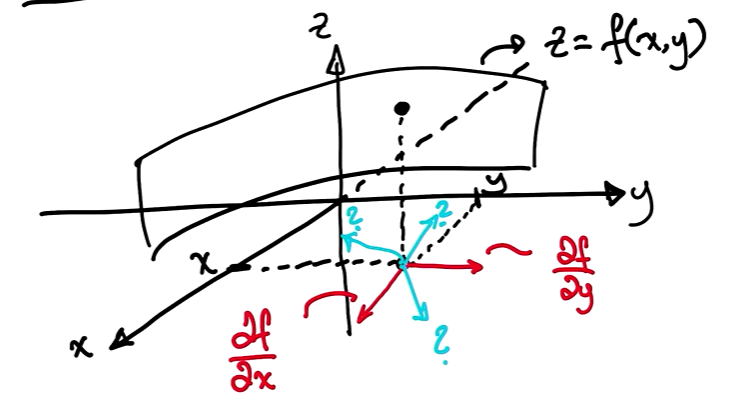 z
z = f(x,y)
y
y
?
?
x
∂f/∂y
x
∂f/∂x
?